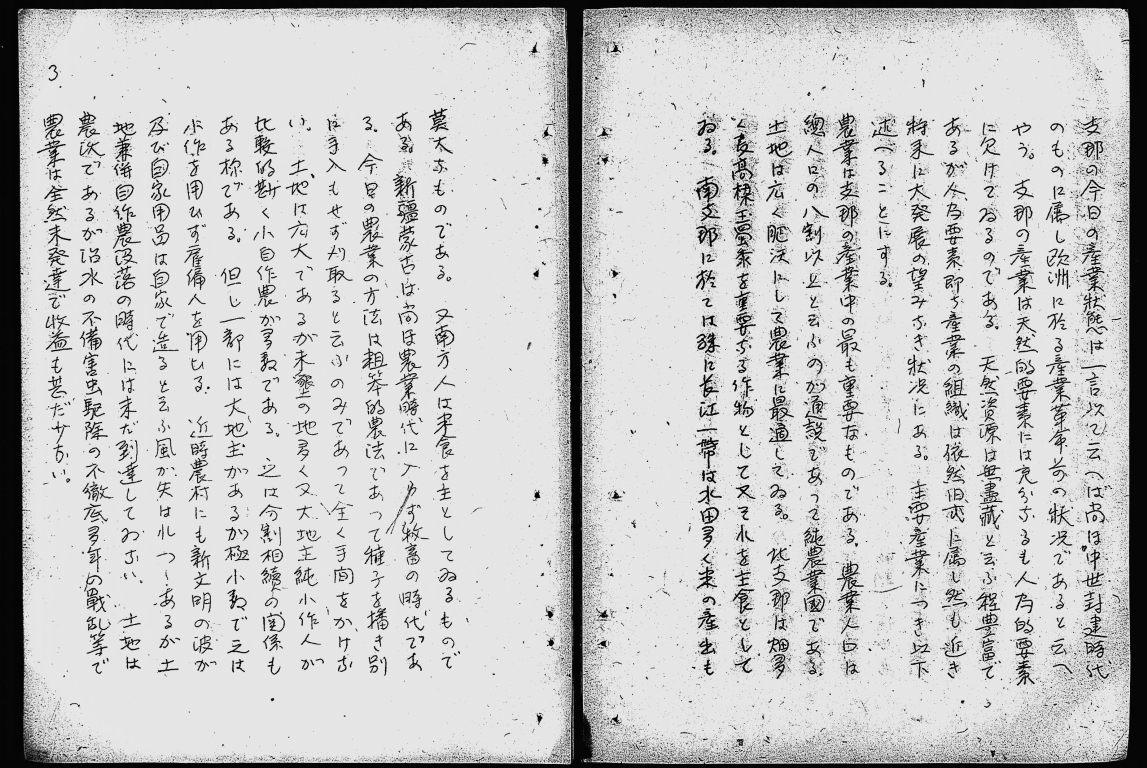 支那の今日の産業狀態は一言以て云へば尚は中世封建時代
のものに属し欧洲に於る産業革命前の状况であると云へ
やう。支那の産業は天然的要素には充分なるも人為的要素
に欠けてゐるのである。天然資源は無盡藏と云ふ程豊富で
あるが人為要素即ち産業の組織は依然旧式に属し然も近き
将来に大発展の望みなき状况にある。主要産業につき以下
述べることにする。
農業は支那の産業中の最も重要なものである。農業人口は
總人口の八割以上と云ふのが通説であって純農業國である。
土地は広く肥沃にして農業に最適してゐる。北支那は畑多
く麦高梁玉蜀黍を重要なる作物として又それを主食として
ゐる。南支那に於ては殊に長江一帶は水田多く米の産出も
莫大なものである。又南方人は米食を主としてゐるもので
ある。新疆蒙古は尚は農業時代に入らず牧畜の時代であ
る。今日の農業の方法は粗笨的農法であって種子を播き別
に手入もせず刈取ると云ふのみであって全く手間をかけな
い。土地は広大であるが未墾の地多く又大地主純小作人が
比較的尠く小自作農が多数である。之は分割相續の関係も
ある様である。但し一部には大地主があるが極小数で之は
小作を用ひず雇傭人を用ひる。近時農村にも新文明の波が
及び自家用品は自家で造ると云ふ風が失はれつゝあるが土
地兼併自作農没落の時代には未だ到達してゐない。土地は
農沃であるが治水の不備害虫駆除の不徹底多年の戰乱等で
農業は全然未発達で收益も甚だ少ない。
3